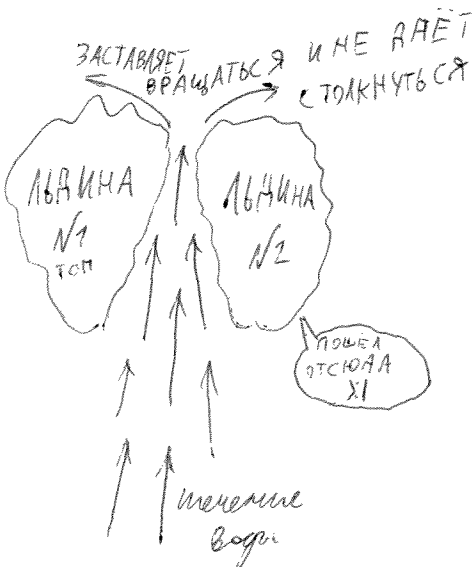 ЗАСТАВЛЯЕТ
ВРАЩАТЬСЯ И НЕ ДАЁТ
СТОЛКНУТЬСЯ
ЛЬДИНА
№1
ТОП
ЛЬДИНА
№2
ПОШЕЛ
ОТСЮДА
XI
течение
воды